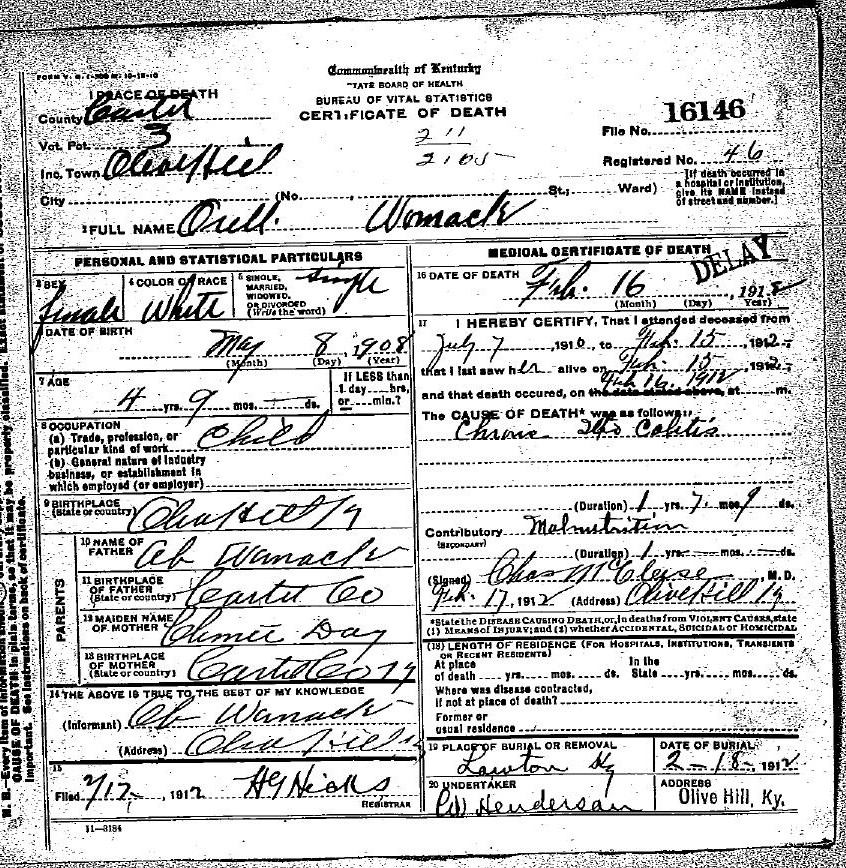 Commonwealth of Kentucky
STATE BOARD OF HEALTH
BUREAU OF VITAL STATISTICS
CERTIFICATE OF DEATH
1 PLACE OF DEATH
County Carter
Vot. Pct. 3
Inc. Town Olive Hill
City (No. St.; Ward)
211
2105
16146
File No.
Registered No. 46
[If death occurred in
a hospital or institution,
give its NAME instead
of street and number.]
2 FULL NAME Orell. Womack
PERSONAL AND STATISTICAL PARTICULARS
3 SEX female
4 COLOR OR RACE White
5 SINGLE, MARRIED, WIDOWED, OR DIVORCED (Write the word) Single
6 DATE OF BIRTH
May 8, 1908
(Month) (Day) (Year)
7 AGE
4 yrs. 9 mos. ds.
If LESS than
1 day hrs.
or min.?
8 OCCUPATION
(a) Trade, profession, or
particular kind of work Child
(b) General nature of industry
business, or establishment in
which employed (or employer)
9 BIRTHPLACE
(State or country) Olive Hill Ky
PARENTS
10 NAME OF
FATHER Ab Wamack
11 BIRTHPLACE
OF FATHER
(State or country) Carter Co
12 MAIDEN NAME
OF MOTHER Day
13 BIRTHPLACE
OF MOTHER
(State or country) Carter Co Ky
14 THE ABOVE IS TRUE TO THE BEST OF MY KNOWLEDGE
(Informant) Ab Wamack
(Address) Olive Hill Ky
15
Filed 2/17, 1912 HG Hicks
REGISTRAR
11-3184
MEDICAL CERTIFICATE OF DEATH
DELAY
16 DATE OF DEATH
Feb. 16, 1912
(Month) (Day) (Year)
17 I HEREBY CERTIFY, That I attended deceased from
July 7 1910, to Feb. 15, 1912,
that I last saw her alive on Feb. 15, 1912,
Feb 16, 1912
and that death occured, on the date stated above, at m.
The CAUSE OF DEATH* was as follows:
Chronic Ileo Colitis
(Duration) 1 yrs. 7 mos. 9 ds.
Contributory Malnutrition
(SECONDARY)
(Duration) 1 yrs. mos. ds.
(Signed) Chas McCleese, M. D.
Feb. 17, 1912 (Address) Olive Hill Ky
*State the DISEASE CAUSING DEATH, or, in deaths from VIOLENT CAUSES, state
(1) MEANS OF INJURY; and (2) whether ACCIDENTAL, SUICIDAL or HOMICIDAL
(18) LENGTH OF RESIDENCE (FOR HOSPITALS, INSTITUTIONS, TRANSIENTS
OR RECENT RESIDENTS)
At place In the
of death yrs. mos. ds. State yrs. mos. ds.
Where was disease contracted,
if not at place of death?
Former or
usual residence
19 PLACE OF BURIAL OR REMOVAL
Lawton Ky
DATE OF BURIAL
2-18-, 1912
20 UNDERTAKER
CW Henderson
ADDRESS
Olive Hill, Ky.
N. B.—Every item of information
CAUSE OF DEATH in plain terms, so that it may be properly classified.
important. See instructions on back of certificate.